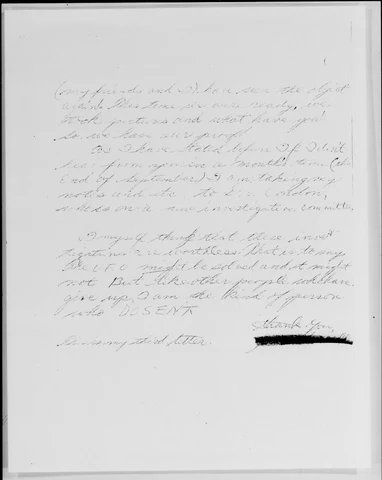 (my friends and I) have seen the object
again. This time we were ready, we
took pictures and what have you
so we have our proof.
As I have stated before if I don't
hear from you in a month's time (the
end of september) I am taking my
notes and etc. to Dr. Condon,
who is on a new investigation committee.
I myself think that these inves-
tigations are worthless. That is to say
the U.F.O might be solved and it might
not. But like other people who have
give up, I am the kind of person
who DOSENT
Thank You,
This is my third letter.